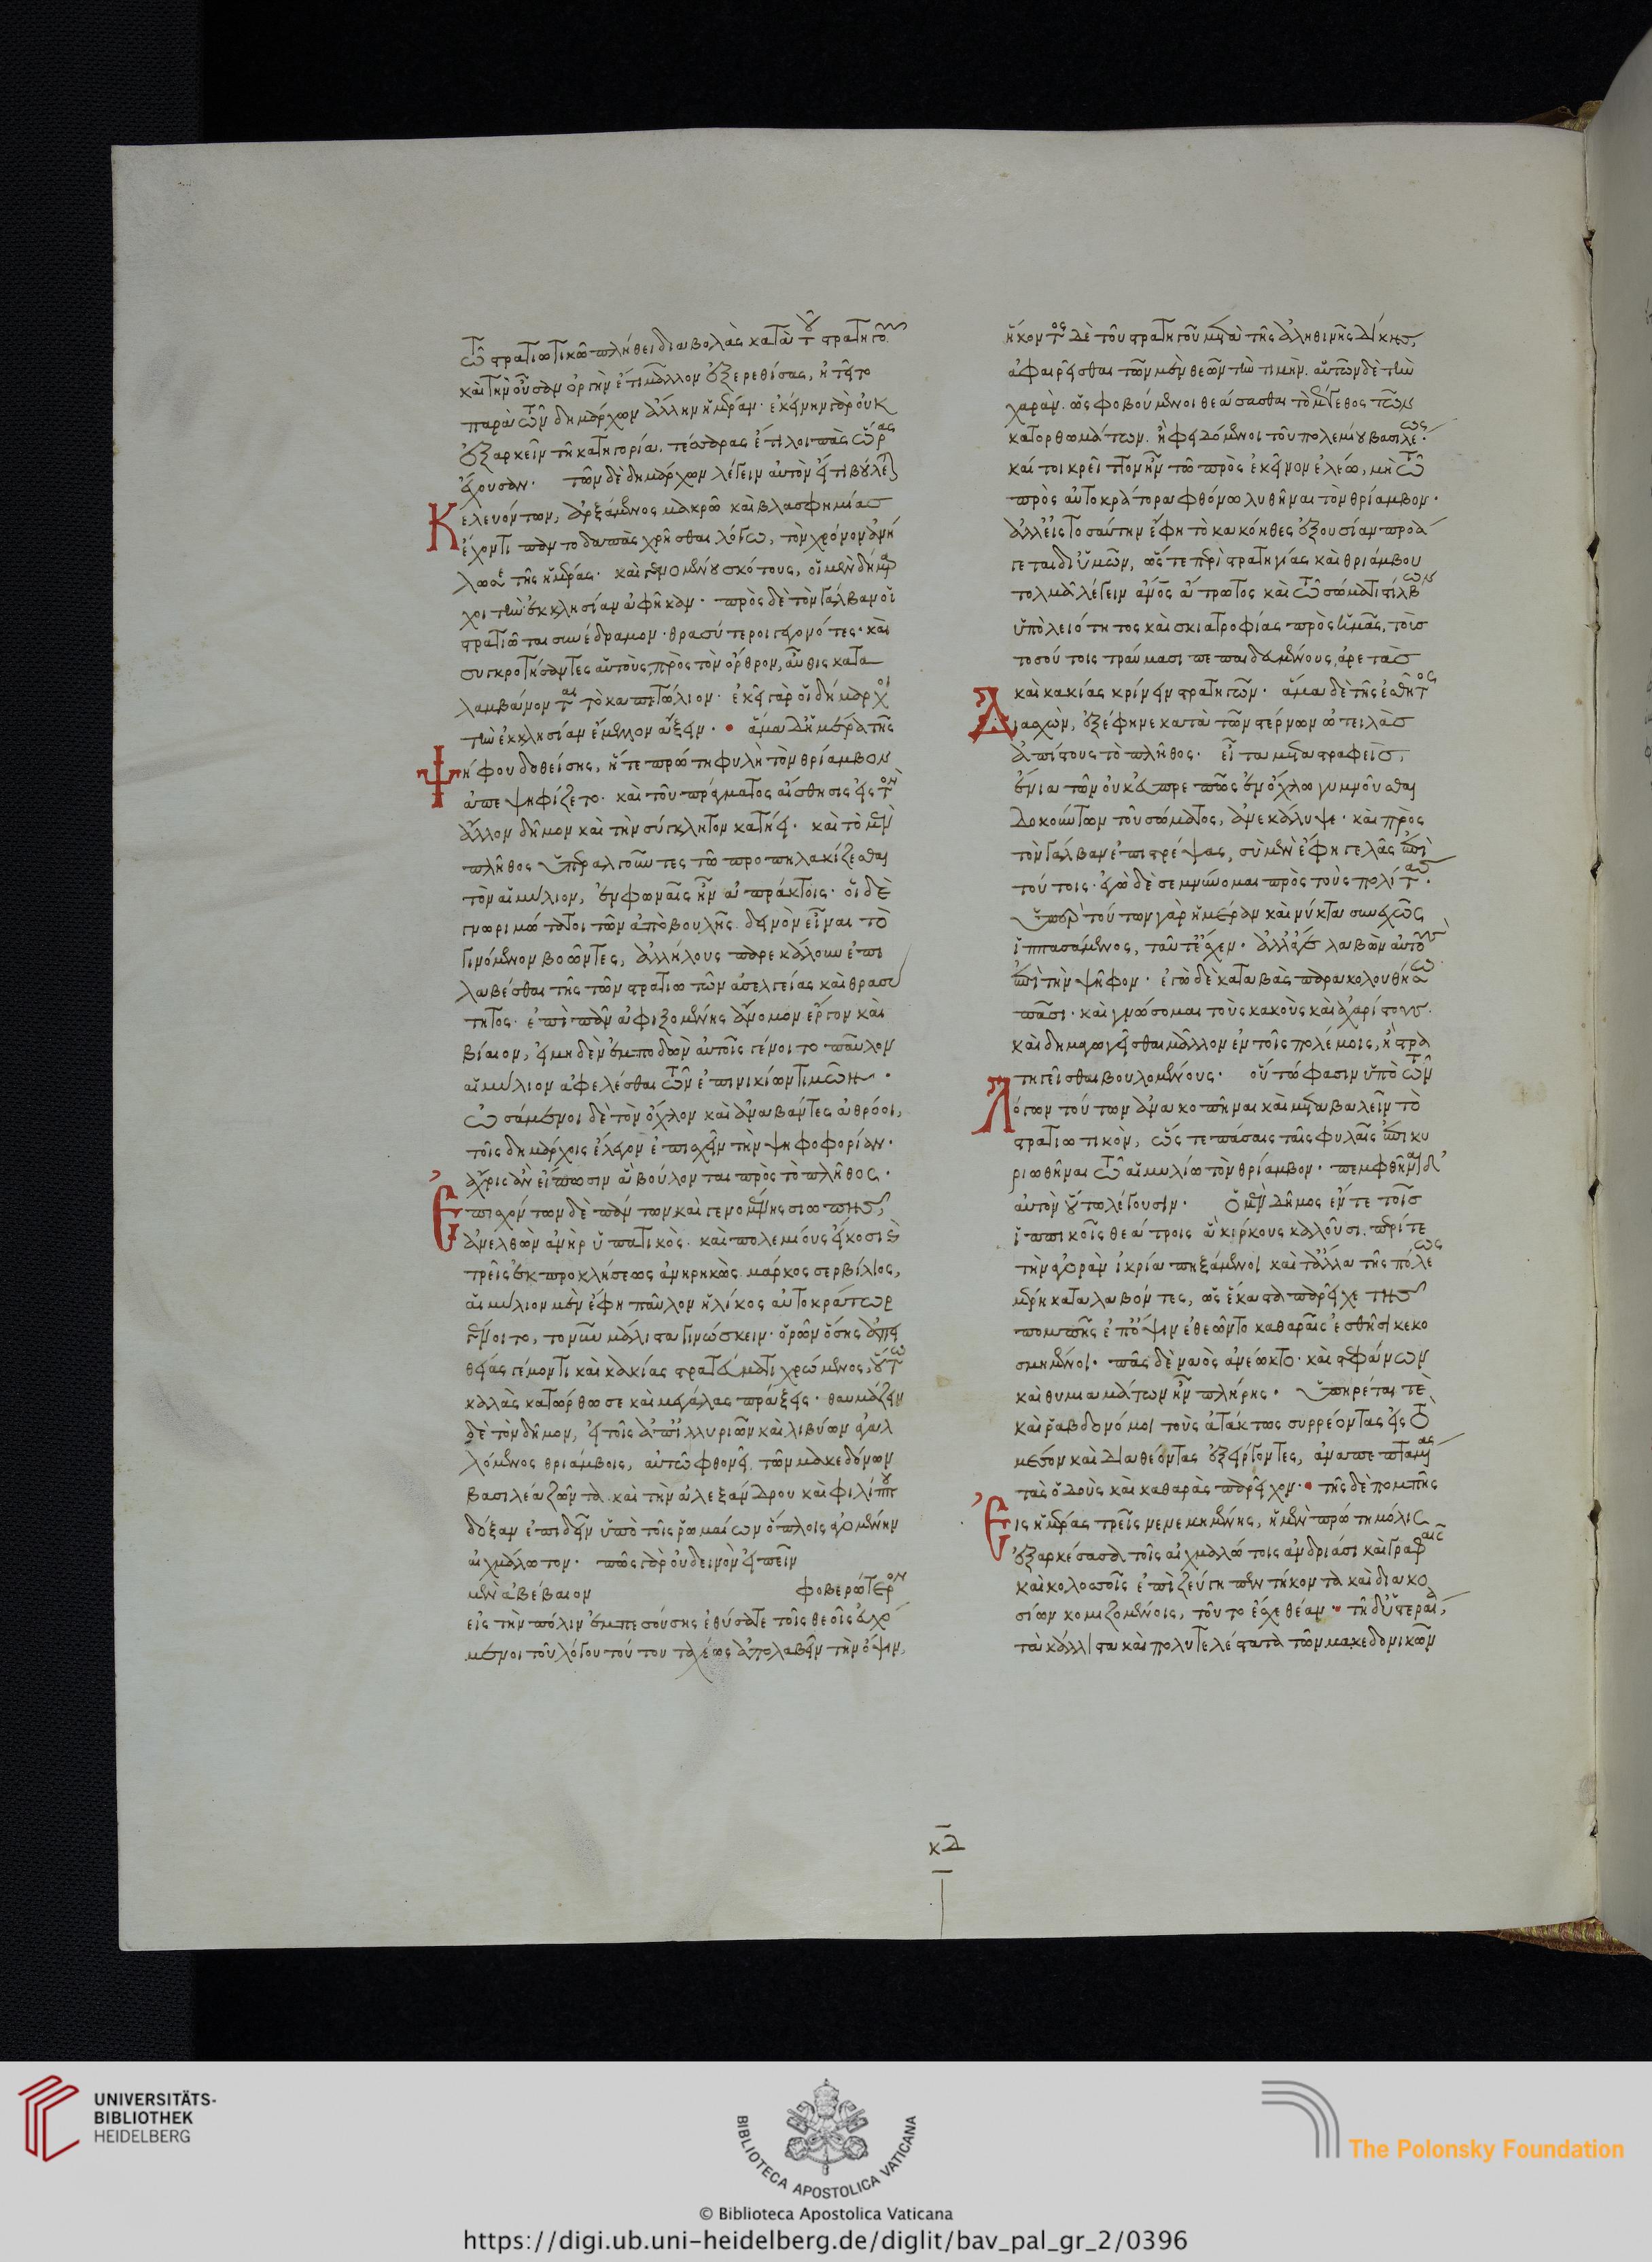 τῶ στρατιωτικῶ πλήθει διαβολὰς κατὰ τοῦ στρατηγοῦ
καὶ τὴν οὖσαν ὀργὴν ἔτι μᾶλλον ἐξερεθίσας, ἠτεῖτο
παρὰ τῶν δημάρχων ἄλλην ἡμέραν· ἐκείνην γὰρ οὐκ
ἐξαρκεῖν τῆ κατηγορία. τέσσαρας ἔτι λοιπὰς ὥρας
ἔχουσαν. τῶν δὲ δημάρχων λέγειν αὐτὸν εἴ τι βούλεται
Κελευόντων, ἀρξάμενος μακρῶ καὶ βλασφημίας
ἔχοντι παντοδαπὰς χρῆσθαι λόγω, τὸν χρόνον ἀνή
λωσε τῆς ἡμέρας· καὶ γενομένου σκότους, οἱ μὲν δήμαρ
χοι τὴν ἐκκλησίαν ἀφῆκαν· πρὸς δὲ τὸν Γάλβαν οἱ
στρατιῶται συνέδραμον· θρασύτεροι γεγονότες· καὶ
συγκροτήσαντες αὑτοὺς, πρὸς τὸν ὄρθρον, αὖθις κατα
λαμβάνονται τὸ καπιτώλιον· ἐκεῖ γὰρ οἱ δήμαρχοι
τὴν ἐκκλησίαν ἔμελλον ἄξειν. · ἅμα δ' ἡμέρα τῆς
Ψήφου δοθείσης, ἥ τε πρώτη φυλὴ τὸν θρίαμβον
ἀπεψηφίζετο· καὶ τοῦ πράγματος αἴσθησις εἰς τὸν
ἄλλον δῆμον καὶ τὴν σύγκλητον κατήει· καὶ τὸ μὲν
πλῆθος ὑπεραλγοῦντες τῶ προπηλακίζεσθαι
τὸν αἰμίλιον, ἐν φωναῖς ἦν ἀπράκτοις· οἱ δὲ
γνωριμώτατοι τῶν ἀπὸ βουλῆς δεινὸν εἶναι τὸ
γινόμενον βοῶντες, ἀλλήλους παρεκάλουν ἐπι
λαβέσθαι τῆς τῶν στρατιωτῶν ἀσελγείας καὶ θρασύ
τητος· ἐπὶ πᾶν ἀφιξομένης ἄνομον ἔργον καὶ
βίαιον, εἰ μηδὲν ἐμποδὼν αὐτοῖς γένοιτο παῦλον
αἰμίλιον ἀφελέσθαι τῶν ἐπινικίων τιμῶν.
ὠσάμενοι δὲ τὸν ὄχλον καὶ ἀναβάντες ἀθρόοι,
τοῖς δημάρχοις ἔλεγον ἐπισχεῖν τὴν ψηφοφορίαν·
ἄχρις ἂν εἴπωσιν ἃ βούλονται πρὸς τὸ πλῆθος.
Ἐπισχόντων δὲ πάντων καὶ γενομένης σιωπῆς
ἀνελθὼν ἀνὴρ ὑπατικὸς· καὶ πολεμίους εἴκοσι
τρεῖς ἐκ προκλήσεως ἀνηρηκὼς μάρκος σερβίλιος,
αἰμίλιον μὲν ἔφη παῦλον ἡλίκος αὐτοκράτωρ
γένοιτο, το νῦν μάλιστα γινώσκειν· ὁρῶν ὅσης ἀπει
θείας γέμοντι καὶ κακίας στρατεύματι χρώμενος, οὕτω
καλὰς κατώρθωσε καὶ μεγάλας πράξεις· θαυμάζειν
δὲ τὸν δῆμον, εἰ τοῖς ἀπ' ἰλλυριῶν καὶ λιβύων ἀγαλ
λόμενος θριάμβοις, αὐτῶ φθονεῖ τῶν μακεδόνων
βασιλέα ζῶντα καὶ τὴν ἀλεξάνδρου καὶ φιλίππου
δόξαν ἐπιδεῖν ὑπὸ τοῖς ῥωμαίων ὅπλοις ἀγομένην
αἰχμάλωτον· πῶς γὰρ οὐ δεινὸν εἰπεῖν
μὲν ἀβέβαιον φοβερώτερον
εἰς τὴν πόλιν ἐμπεσούσης ἐθύσατε τοῖς θεοῖς εὐχό
μενοι τοῦ λόγου τούτου ταχέως ἀπολαβεῖν τὴν ὄψιν,
ἥκοντος δὲ τοῦ στρατηγοῦ μετὰ τῆς ἀληθινῆς δίκης,
ἀφαιρεῖσθαι τῶν μὲν θεῶν τὴν τιμὴν. αὑτῶν δὲ τὴν
χαρὰν. ὡς φοβούμενοι θεάσασθαι τὸ μέγεθος τῶν
κατορθωμάτων. ἢ φειδόμενοι τοῦ πολεμίου βασιλέως.
καί τοι κρεῖττον ἦν τῶ πρὸς ἐκεῖνον ἐλέω, μὴ τῶ
πρὸς αὐτοκράτορα φθόνω λυθῆναι τὸν θρίαμβον.
ἀλλ' εἰς τοσαύτην ἔφη τὸ κακόηθες ἐξουσίαν προά
γεται δι' ὑμῶν, ὥστε περὶ στρατηγίας καὶ θριάμβου
τολμᾶ λέγειν ἀνὴρ ἄτρωτος καὶ τῶ σώματι στίλβων
ὑπὸ λειότητος καὶ σκιατροφίας πρὸς ὑμᾶς, τοὺς
τοσούτοις τραύμασι πεπαιδευμένους, ἀρετὰς
καὶ κακίας κρίνειν στρατηγῶν. ἅμα δὲ τῆς ἐσθῆτος
Διασχὼν, ἐξέφηνε κατὰ τῶν στέρνων ὠτειλὰς
ἀπίστους τὸ πλῆθος. εἶτα μεταστραφεὶς,
ἔνια τῶν οὐκ εὐπρεπῶς ἐν ὄχλω γυμνοῦσθαι
δοκούντων τοῦ σώματος, ἀνεκάλυψε· καὶ πρὸς
τὸν Γάλβαν ἐπιστρέψας, σὺ μὲν ἔφη γελᾶς ἐπὶ
τούτοις· ἐγὼ δὲ σεμνύνομαι πρὸς τοὺς πολίτας.
Ὑπὲρ τούτων γὰρ ἡμέραν καὶ νύκτα συνεχῶς
ἱππασάμενος, ταῦτ' ἔσχον. ἀλλ' ἄγε λαβὼν αὐτοὺς
ἐπὶ τὴν ψῆφον· ἐγὼ δὲ καταβὰς παρακολουθήσω
πᾶσι· καὶ γνώσομαι τοὺς κακοὺς καὶ ἀχαρίστους.
καὶ δημαγωγεῖσθαι μᾶλλον ἐν τοῖς πολέμοις, ἢ στρα
τηγεῖσθαι βουλομένους. οὕτω φασιν ὑπὸ τῶν
Λόγων τούτων ἀνακοπῆναι καὶ μεταβαλεῖν τὸ
στρατιωτικὸν, ὥστε πάσαις ταῖς φυλαῖς ἐπικυ
ρωθῆναι τῶ αἰμιλίω τὸν θρίαμβον. πεμφθῆναι δ'
αὐτὸν οὕτω λέγουσιν. Ὁ μὲν δῆμος ἔν τε τοῖς
ἱππικοῖς θεάτροις ἃ κίρκους καλοῦσι. περί τε
τὴν ἀγορὰν ἰκρία πηξάμενοι καὶ τἄλλα τῆς πόλεως
μέρη καταλαβόντες, ὡς ἕκαστα παρεῖχε τῆς
πομπῆς ἐπόψιν ἐθεῶντο καθαραῖς ἐσθῆσι κεκο
σμημένοι. πᾶς δὲ ναὸς ἀνέωκτο· καὶ στεφάνων
καὶ θυμιαμάτων ἦν πλήρης. Ὑπηρέται τὲ
καὶ ῥαβδονόμοι τοὺς ἀτάκτως συρρέοντας εἰς τὸ
μέσον καὶ διαθέοντας ἐξείργοντες, ἀναπεπταμένας
τὰς ὁδοὺς καὶ καθαρὰς παρεῖχον. · τῆς δὲ πομπῆς
Εἰς ἡμέρας τρεῖς νενεμημένης, ἡ μὲν πρώτη μόλις
ἐξαρκέσασα τοῖς αἰχμαλώτοις ἀνδριάσι καὶ γραφαῖς
καὶ κολοσσοῖς ἐπὶ ζευγῶν πεντήκοντα καὶ διακο
σίων κομιζομένοις, τούτο ἔσχε θέαν. · τῆ δ' ὑστεραία,
τὰ κάλλιστα καὶ πολυτελέστατα τῶν μακεδονικῶν
κδ
UNIVERSITÄTS-
BIBLIOTHEK
HEIDELBERG
BIBLIOTECA APOSTOLICA VATICANA
The Polonsky Foundation
© Biblioteca Apostolica Vaticana
https://digi.ub.uni-heidelberg.de/diglit/bav_pal_gr_2/0396